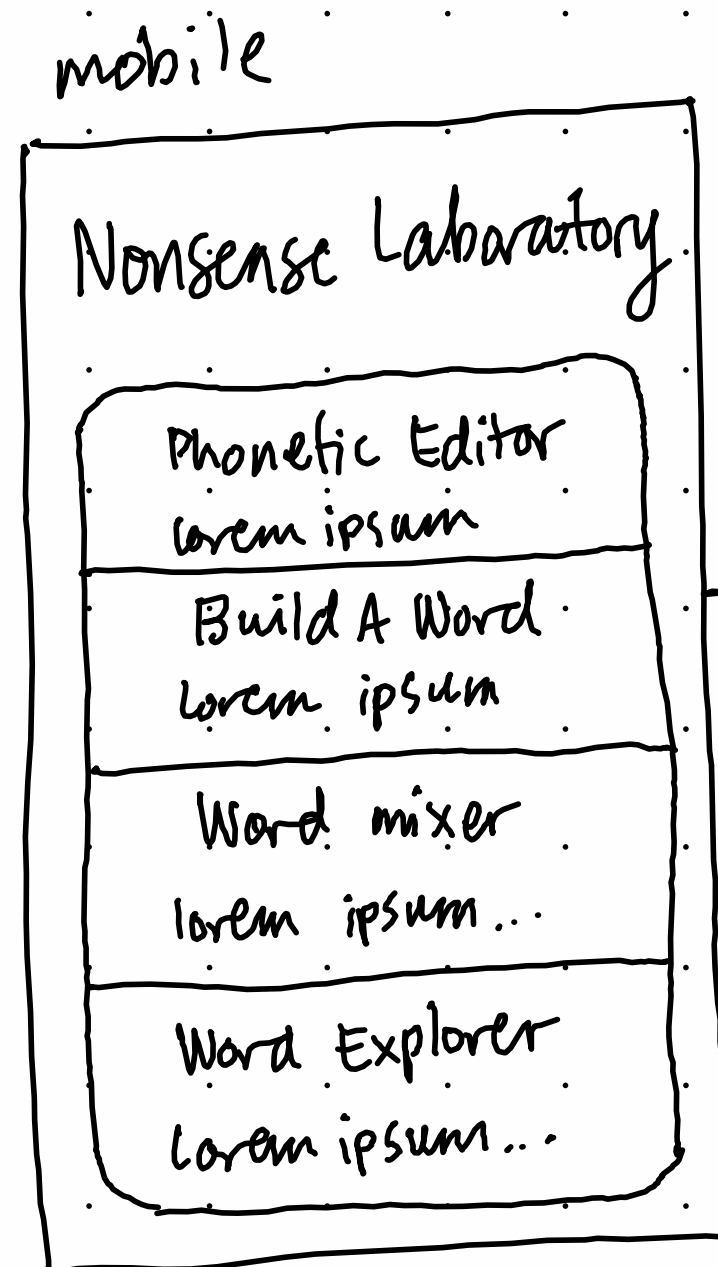 mobile
Nonsense Laboratory
Phonetic Editor
lorem ipsum
Build A Word
lorem ipsum
Word mixer
lorem ipsum...
Word Explorer
lorem ipsum...